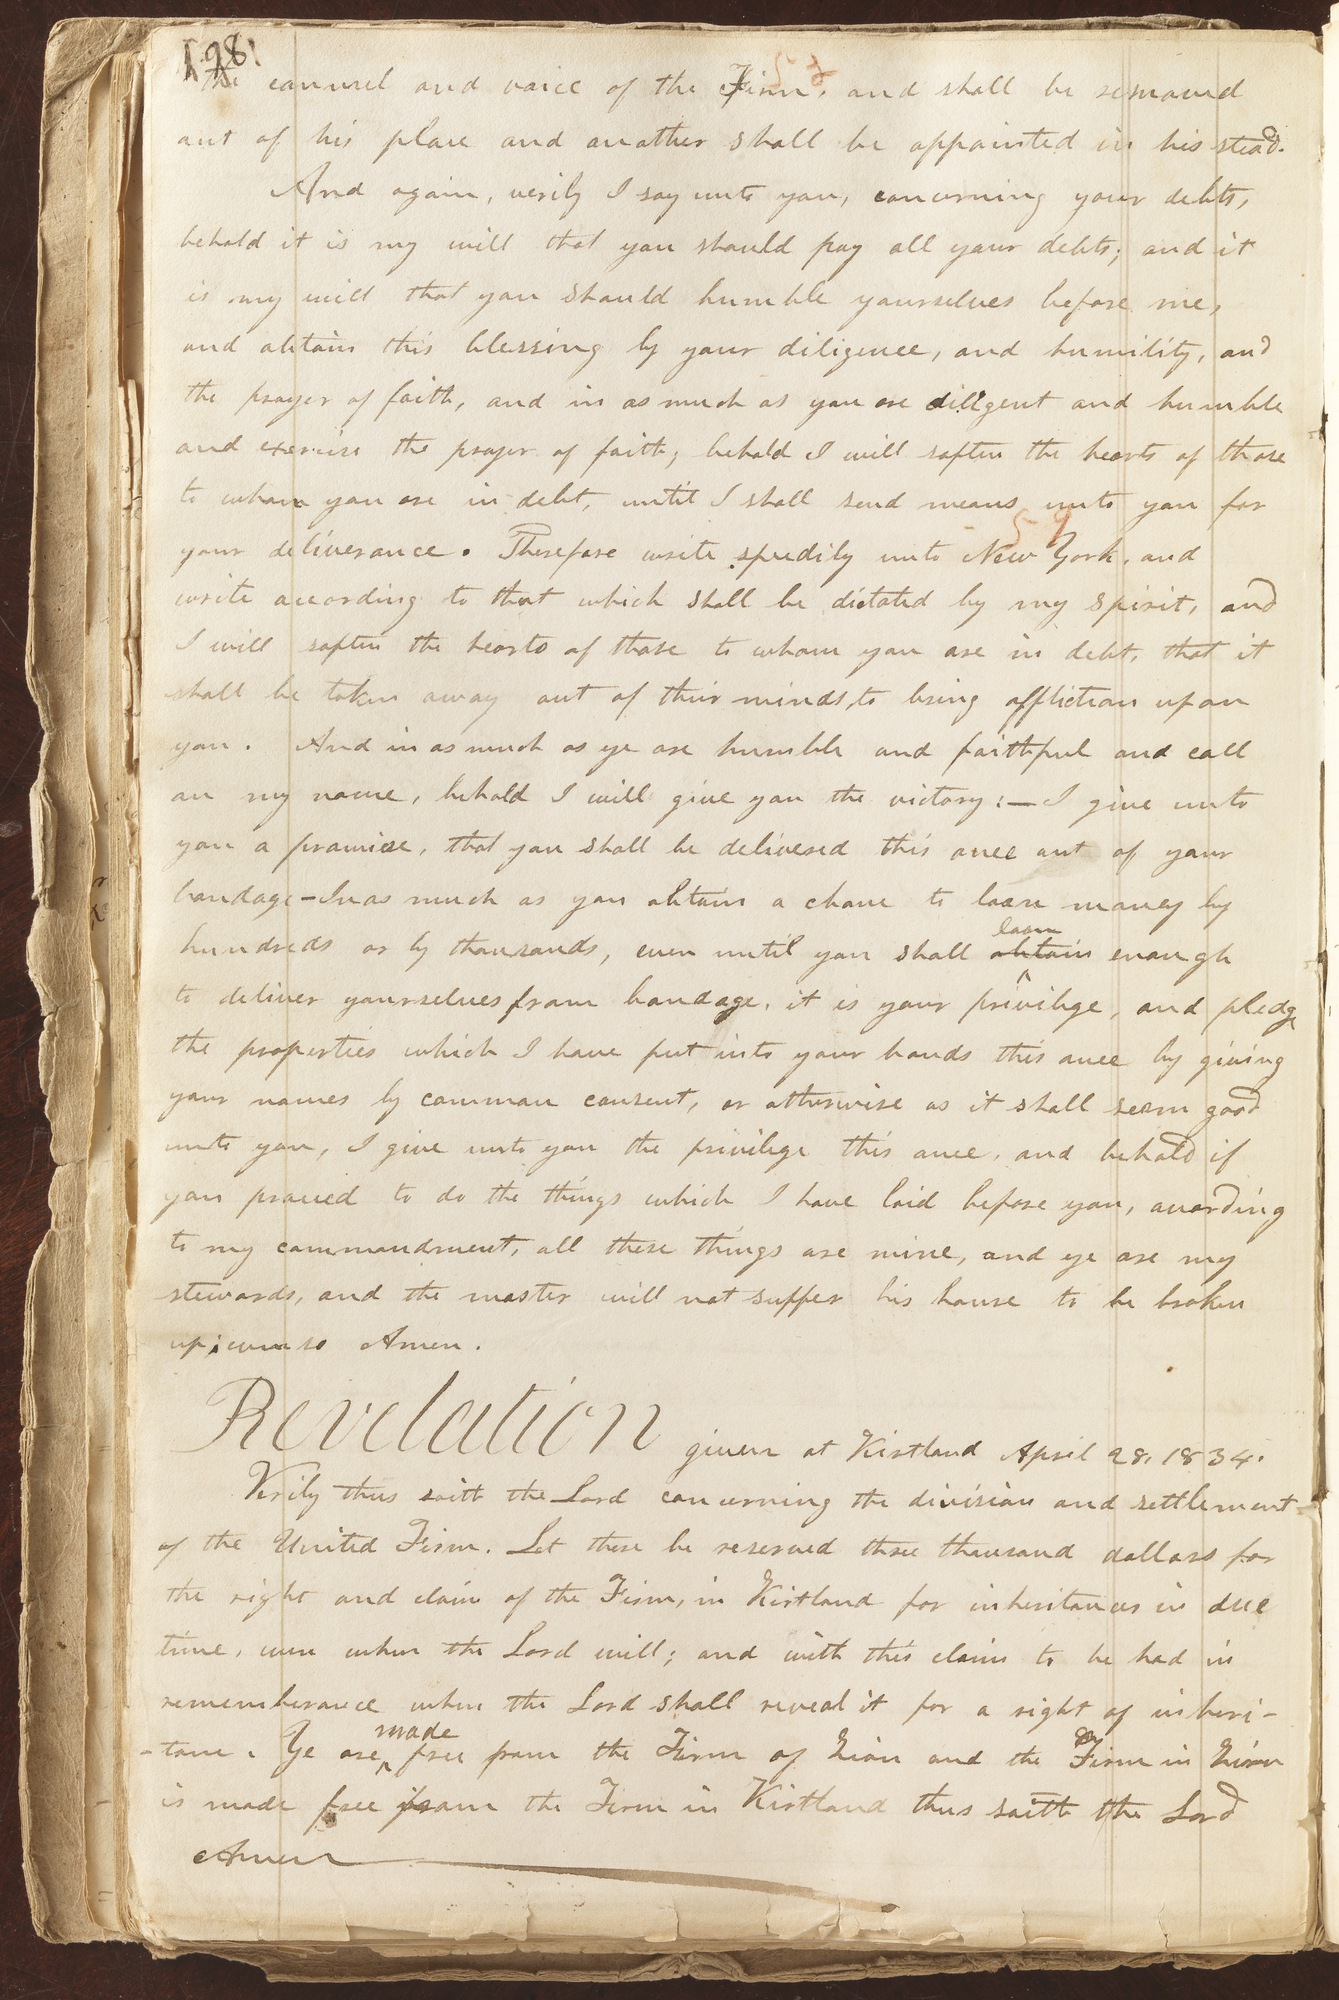 198
the counsel and voice of the Firm, and shall be removed
out of his place and another shall be appointed in his stead.
And again, verily I say unto you, concerning your debts,
behold it is my will that you should pay all your debts; and it
is my will that you should humble yourselves before me,
and obtain this blessing by your diligence, and humility, and
the prayer of faith, and in as much as you are diligent and humble
and exercise the prayer of faith; behold I will soften the hearts of those
to whom you are in debt, until I shall send means unto you for
59
your deliverance. Therefore write speedily unto New York, and
write according to that which shall be dictated by my spirit, and
I will soften the hearts of those to whom you are in debt, that it
shall be taken away out of their minds, to bring affliction upon
you. And in as much as ye are humble and faithful and call
on my name, behold I will give you the victory:— I give unto
you a promise, that you shall be delivered this once out of your
bondage—In as much as you obtain a chance to loan money by
hundreds or by thousands, even until you shall obtain enough
loan
to deliver yourselves from bondage, it is your privilege, and pledge
the properties which I have put into your hands this once by giving
your names by common consent, or otherwise as it shall seem good
unto you, I give unto you the privilege this once, and behold if
you proceed to do the things which I have laid before you, according
to my commandment, all these things are mine, and ye are my
stewards, and the master will not suffer his house to be broken
up; even so Amen.
Revelation given at Kirtland April 28, 1834.
Verily thus saith the Lord concerning the division and settlement
of the United Firm. Let there be reserved three thousand dollars for
the right and claim of the Firm, in Kirtland for inheritances in due
time, even when the Lord will; and with this claim to be had in
rememberance when the Lord shall reveal it for a right of inheri-
-tance. Ye are made free from the Firm of Zion and the Firm in Zion
is made free from the Firm in Kirtland thus saith the Lord
Amen